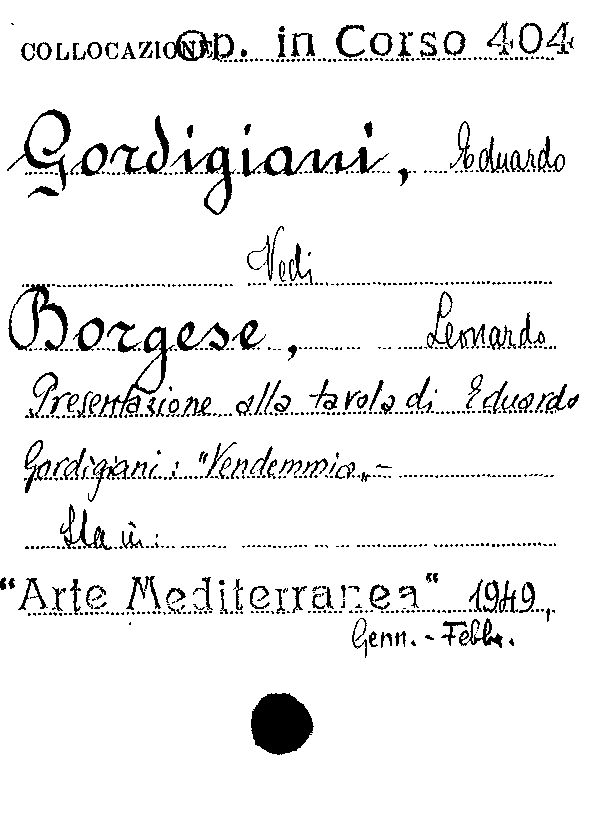 COLLOCAZIONE Op. in Corso 404
Gordigiani, Eduardo
Vedi
Borgese, Leonardo
Presentazione alla tavola di Eduardo
Gordigiani: "Vendemmia„ -
Sta in:
"Arte Mediterranea" 1949,
Genn. - Febbr.